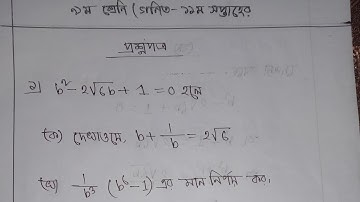 ৯ম শ্রেনি (গানিত- ১১ম সপ্তাহের
প্রশ্নপত্র
১) b² - 2√6b + 1 = 0 হলে
(ক) দেখাওযে, b + 1/b = 2√6
(খ) 1/b³ (b⁶ - 1) এর মান নির্ণয় কর।